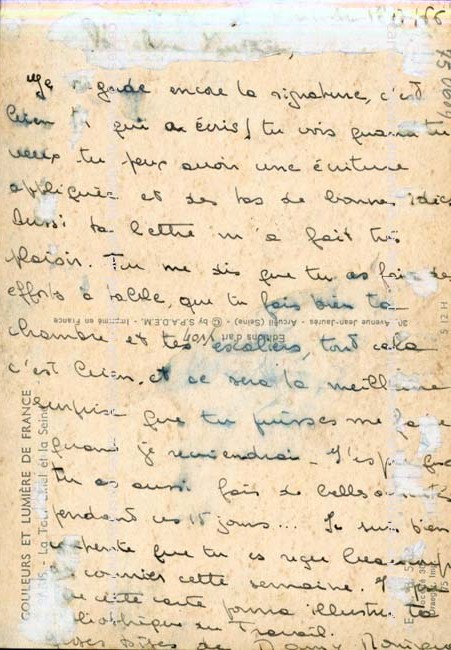 Je regarde encore la signature, c'est
bien toi qui as écris! tu vois quand tu
veux tu peux avoir une écriture
appliquée et des tas de bonnes idées
Aussi ta lettre m'a fait très
plaisir. Tu me dis que tu as fais des
efforts à table, que tu fais bien ta
chambre et tes escaliers, tout cela
c'est bien, et ce sera la meilleure
surprise que tu puisses me faire
quand je reviendrai - J'espère que
tu as aussi fais de belles
pendant ces 15 jours... Je suis bien
que tu as reçu beaucoup
de courrier cette semaine.
cette carte pourra illustrer la
bibliothèque du Travail.
bises de
COULEURS ET LUMIÈRE DE FRANCE
La Tour Eiffel et la Seine
Editions d'art YVON
30, Avenue Jean-Jaurès - Arcueil (Seine) - © by S.P.A.D.E.M. - Imprimé en France